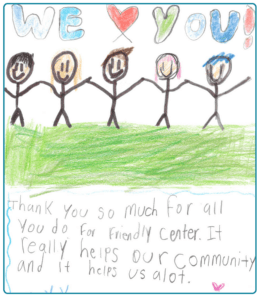 WE YOU!
Thank you so much for all
you do for Friendly Center. It
really helps our community
and it helps us alot.